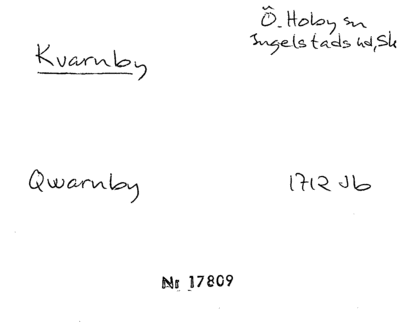 Ö. Hoby sn
Ingelstads hd, Sk
Kvarnby
Qwarnby 1712 Jb
Nr 17809